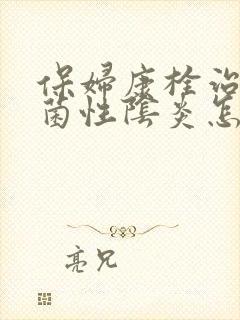 保婦康栓治
菌性陰炎怎
亮兄